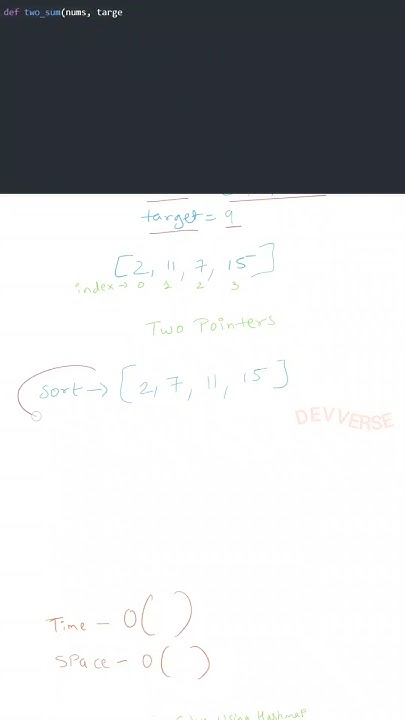 def two_sum(nums, targe
target = 9
[2, 11, 7, 15]
index → 0 1 2 3
Two Pointers
sort → [2, 7, 11, 15]
DEVVERSE
Time - O( )
SPace - O( )
Using Hashmap